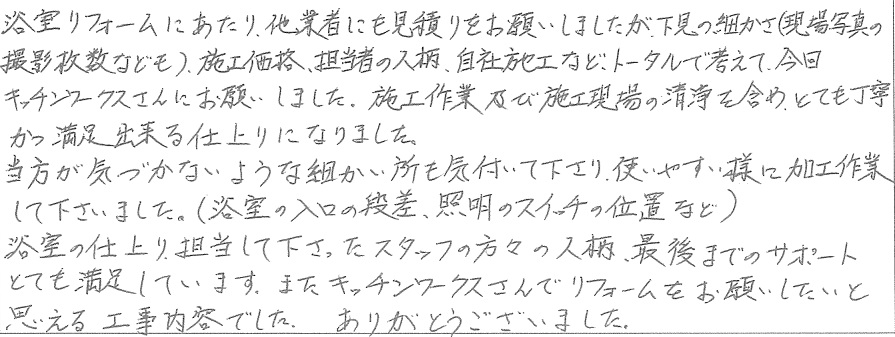 浴室リフォームにあたり、他業者にも見積りをお願いしましたが、下見の細かさ(現場写真の
撮影枚数なども)、施工価格、担当者の人柄、自社施工など、トータルで考えて、今回
キッチンワークスさんにお願いしました。施工作業及び施工現場の清浄を含め、とても丁寧
かつ満足出来る仕上りになりました。
当方が気づかないような細かい所も気付いて下さり、使いやすい様に加工作業
して下さいました。(浴室の入口の段差、照明のスイッチの位置など)
浴室の仕上り、担当して下さったスタッフの方々の人柄、最後までのサポート
とても満足しています。またキッチンワークスさんでリフォームをお願いしたいと
思える工事内容でした。 ありがとうございました。